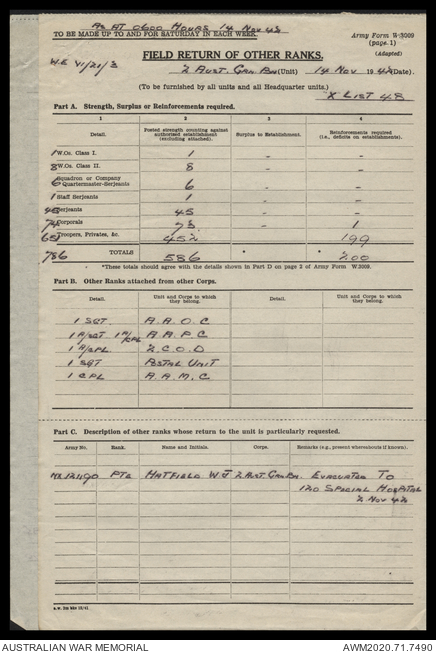 As AT 0600 HOURS 14 NOV 42
TO BE MADE UP TO AND FOR SATURDAY IN EACH WEEK.
Army Form W-3009
(page 1)
(Adapted)
FIELD RETURN OF OTHER RANKS.
W.E VI/21/3
2 AUST. GRN BN (Unit) 14 NOV 1942 (Date).
(To be furnished by all units and all Headquarter units.)
"X LIST 48
Part A. Strength, Surplus or Reinforcements required.
1 2 3 4
Detail. Posted strength counting against authorized establishment (excluding attached). Surplus to Establishment. Reinforcements required (i.e., deficits on establishments).
1 W.Os. Class I. 1 - -
8 W.Os. Class II. 8 - -
6 Squadron or Company Quartermaster-Serjeants 6 - -
1 Staff Serjeants 1 - -
45 Serjeants 45 - -
74 Corporals 73 - 1
651 Troopers, Privates, &c. 452 199
786 TOTALS 586 200
*These totals should agree with the details shown in Part D on page 2 of Army Form W.3009.
Part B. Other Ranks attached from other Corps.
Detail. Unit and Corps to which they belong. Detail. Unit and Corps to which they belong.
1 SGT A.A.O.C
1 A/SGT 1 A/CPL A.A.P.C
1 A/CPL 2.C.O.D
1 SGT POSTAL UNIT
1 CPL A.A.M.C
Part C. Description of other ranks whose return to the unit is particularly requested.
Army No. Rank. Name and Initials. Corps. Remarks (e.g., present whereabouts if known).
PTE HATFIELD W J 2 AUST. GRN BN. EVACUATED TO
120 SPECIAL HOSPITAL
2 NOV 42
AUSTRALIAN WAR MEMORIAL
AWM2020.71.7490